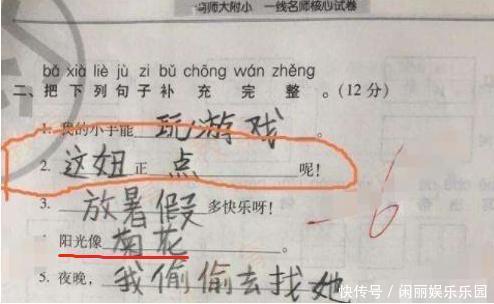 师大附小 一线名师核心试卷
bǎ xià liè jù zi bǔ chōng wán zhěng
二、把下列句子补充完整。(12分)
1. 我的小手能玩游戏。
2. 这妞正点呢!
3. 放暑假多快乐呀!
阳光像菊花。
5. 夜晚,我偷偷去找她
-6
快传号 / 闲丽娱乐乐园